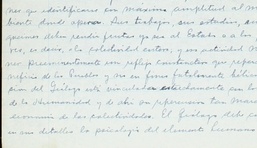 nos que identificarse con máxima amplitud al am
biente donde opera. Sus trabajos, sus estudios, sus
quiones deben rendir frutos ya sea al Estado o a los
res, es decir, a la colectividad entera, y esa actividad
preeminentemente un reflejo constructivo que repore
neficio de los Pueblos y no en forma fatalmente
pias del Geólogo esté vinculada estrechamente con
de la Humanidad y de ahí su repercusión tan
economía de las colectividades. El Geólogo debe
en sus detalles la psicología del elemento humano